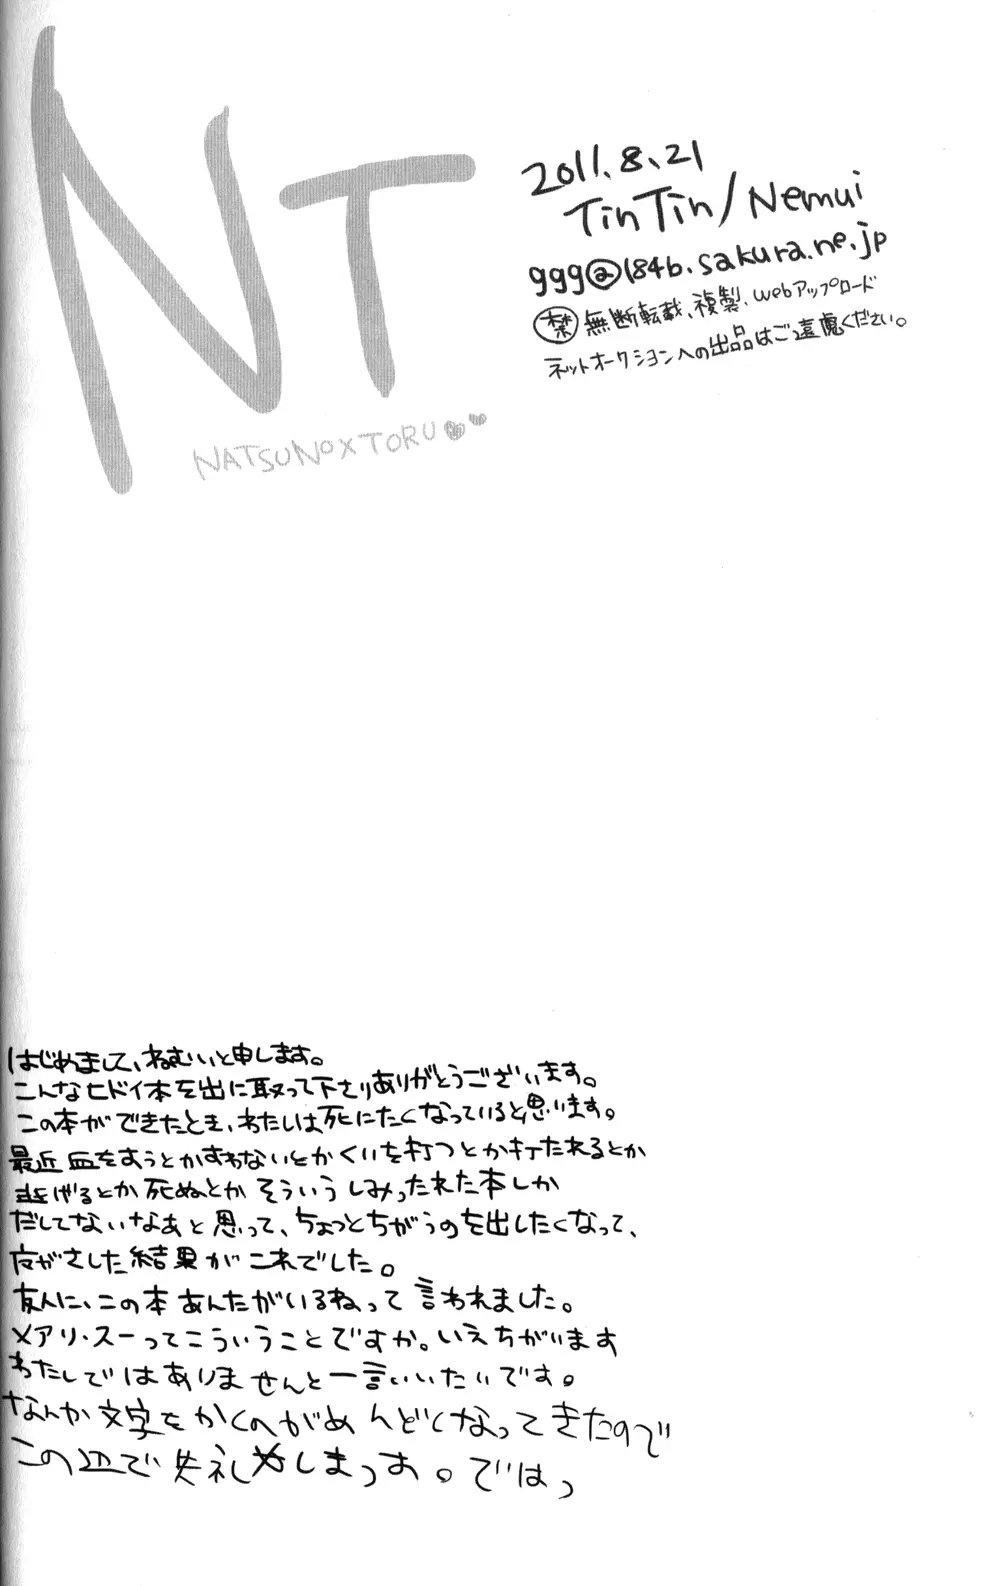 NT
NATSUNO×TORU
2011.8.21
TinTin/Nemui
ggg@184b.sakura.ne.jp
禁 無断転載、複製、webアップロード
ネットオークションへの出品はご遠慮ください。
はじめまして、ねむいと申します。
こんなヒドイ本を出に取って下さりありがとうございます。
この本ができたとき、わたしは死にたくなっていると思います。
最近血をすうとかすわないとかくいを打つとか打たれるとか
逃げるとか死ぬとかそういうしみったれた本しか
だしてないなあと思って、ちょっとちがうのを出したくなって、
夜がさした結果がこれでした。
友人に、この本あんたがいるねって言われました。
メアリ・スーってこういうことですか。いえちがいます
わたしではありませんと一言いいたいです。
なんか文字をかくのがめんどくなってきたので
この辺で失礼しまっす。ではっ